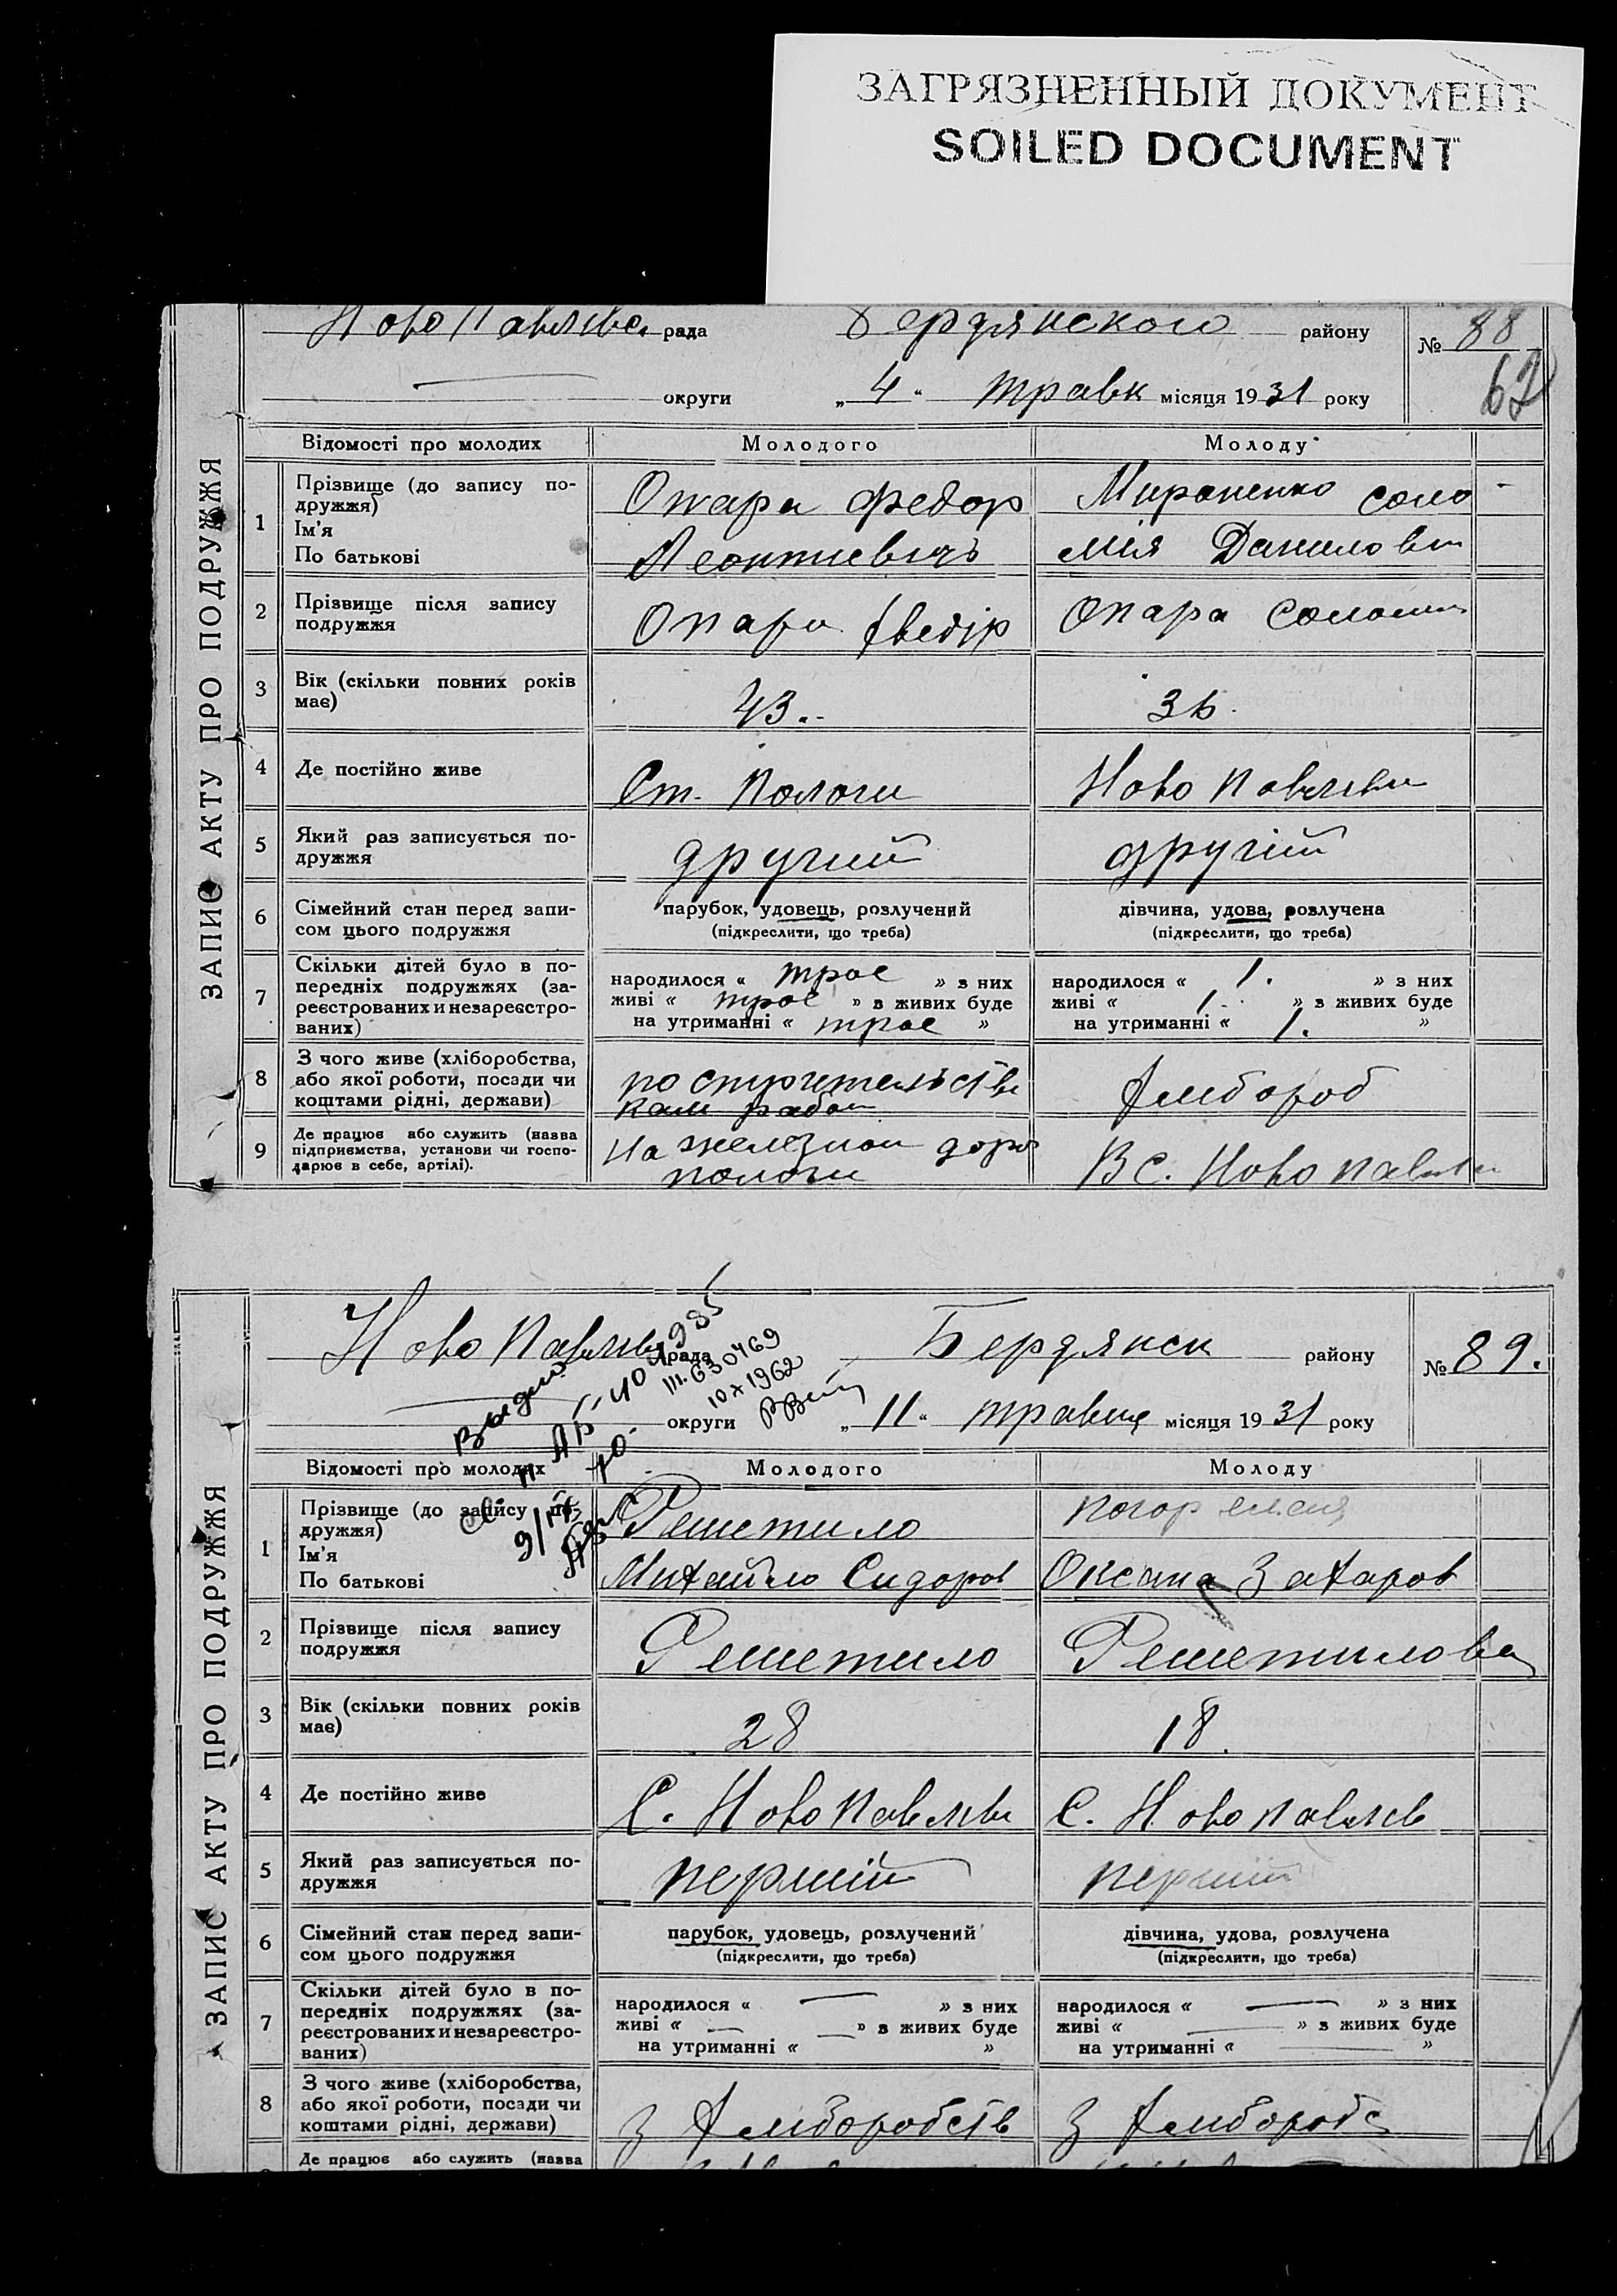 ЗАГРЯЗНЕННЫЙ ДОКУМЕНТ
SOILED DOCUMENT
рада Бердянского району № 88
округи „ 4 “ травк місяця 1931 року
ЗАПИС АКТУ ПРО ПОДРУЖЖЯ
Відомості про молодих Молодого Молоду
1 Прізвище (до запису по-
дружжя)
Ім'я
По батькові
Опара Федор
Леонтиевичъ
Мироненко Соло
мія
2 Прізвище після запису
подружжя
Опара Федір
Опара
3 Вік (скільки повних років
має)
43
36
4 Де постійно живе
Ст. Пологи
Ново
5 Який раз записується по-
дружжя
другий
другій
6 Сімейний стан перед запи-
сом цього подружжя
парубок, удовець, розлучений
(підкреслити, що треба)
дівчина, удова, розлучена
(підкреслити, що треба)
7 Скільки дітей було в по-
передніх подружжях (за-
реєстрованих и незареєстро-
ваних)
народилося « трое » з них
живі « трое » з живих буде
на утриманні « трое »
народилося « 1. » з них
живі « 1. » з живих буде
на утриманні « 1. »
8 З чого живе (хліборобства,
або якої роботи, посади чи
коштами рідні, держави)
хлібороб
9 Де працює або служить (назва
підприємства, установи чи госпо-
дарює в себе, артілі).
на железной доро
пологи
В с. Ново
рада Бердянск району № 89.
округи „ 11 “ місяця 1931 року
630469
10 X 1962
ЗАПИС АКТУ ПРО ПОДРУЖЖЯ
Відомості про молодих Молодого Молоду
1 Прізвище (до запису по-
дружжя)
Ім'я
По батькові
Решетило
Михайло Сидоров
Оксана Захаров
2 Прізвище після запису
подружжя
Решетило
Решетилова
3 Вік (скільки повних років
має)
28
18.
4 Де постійно живе
С. Ново
С. Ново
5 Який раз записується по-
дружжя
першій
першій
6 Сімейний стан перед запи-
сом цього подружжя
парубок, удовець, розлучений
(підкреслити, що треба)
дівчина, удова, розлучена
(підкреслити, що треба)
7 Скільки дітей було в по-
передніх подружжях (за-
реєстрованих и незареєстро-
ваних)
народилося « — » з них
живі « — » з живих буде
на утриманні « »
народилося « — » з них
живі « — » з живих буде
на утриманні « — »
8 З чого живе (хліборобства,
або якої роботи, посади чи
коштами рідні, держави)
з хліборобств
з хлібороб
Де працює або служить (назва